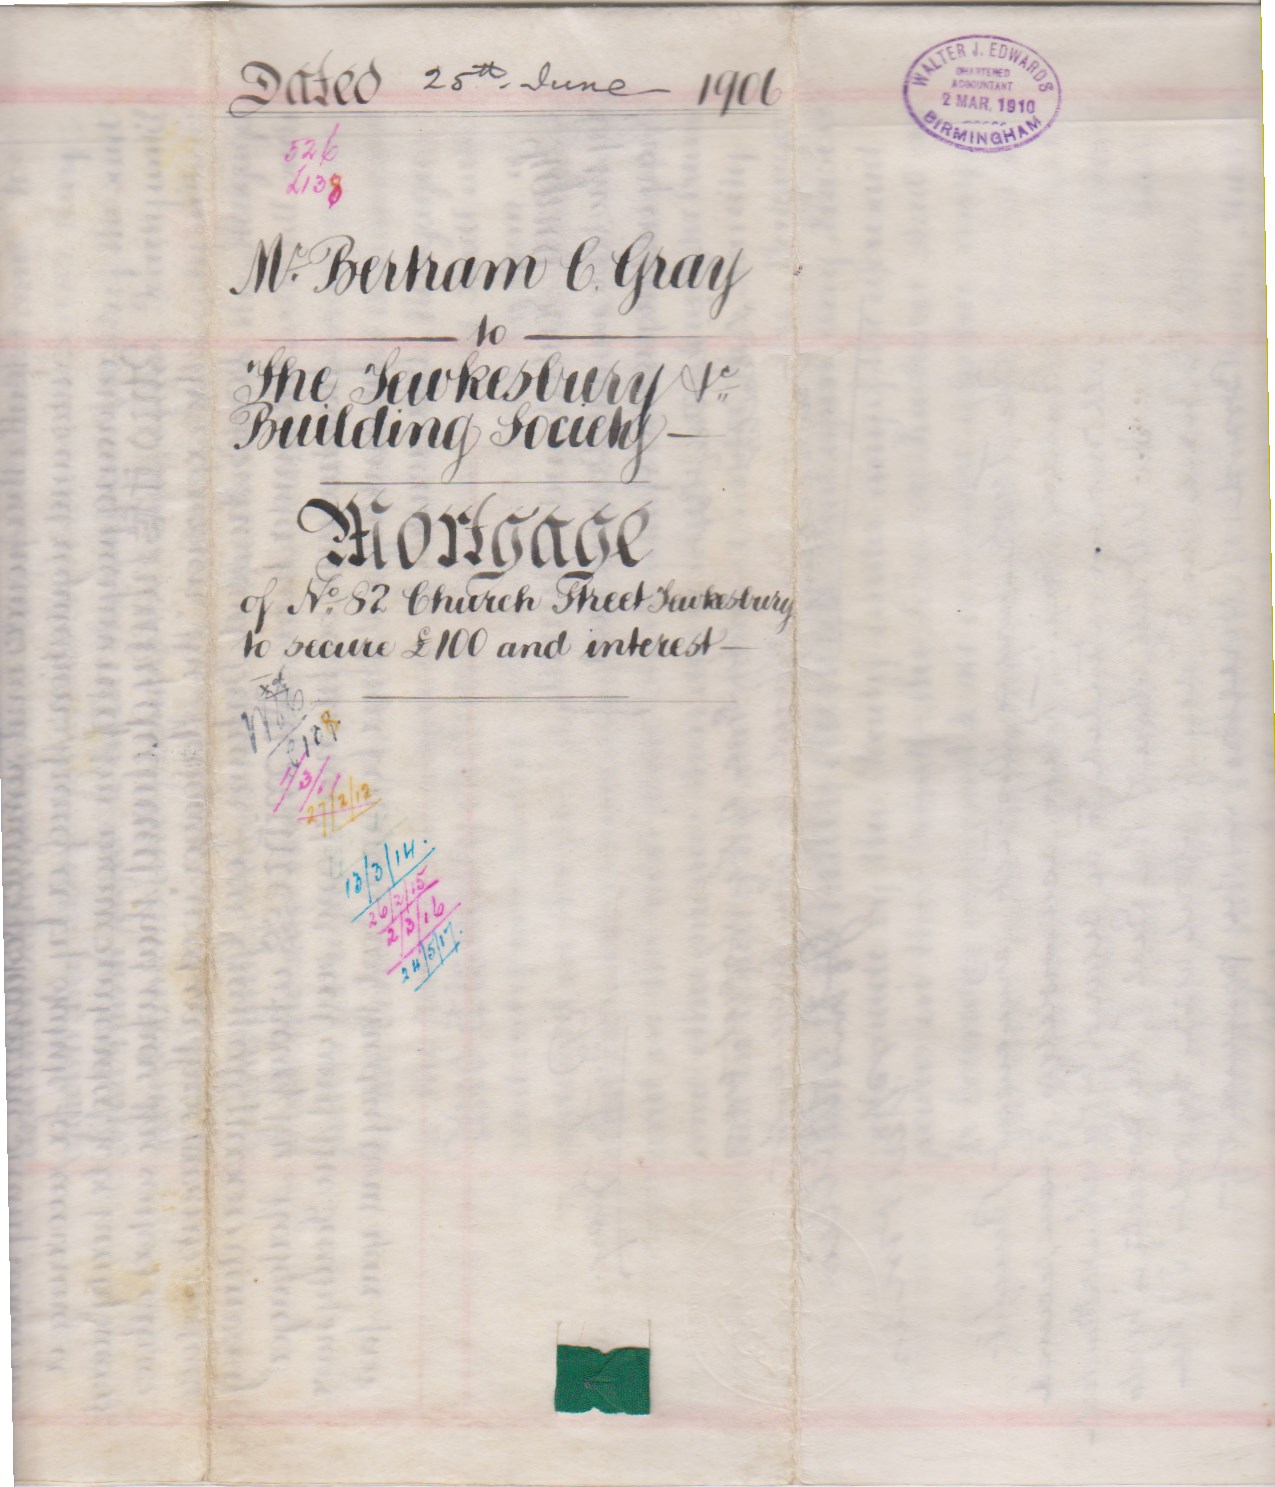 Dated 25th June 1906
WALTER J. EDWARDS
CHARTERED
ACCOUNTANT
2 MAR. 1910
BIRMINGHAM
526
£138
Mr. Bertram C. Gray
to
The Tewkesbury &c
Building Society
Mortgage
of No. 82 Church Street Tewkesbury
to secure £100 and interest
27/2/12
13/3/14.
26/2/15
2/3/16
24/5/17.